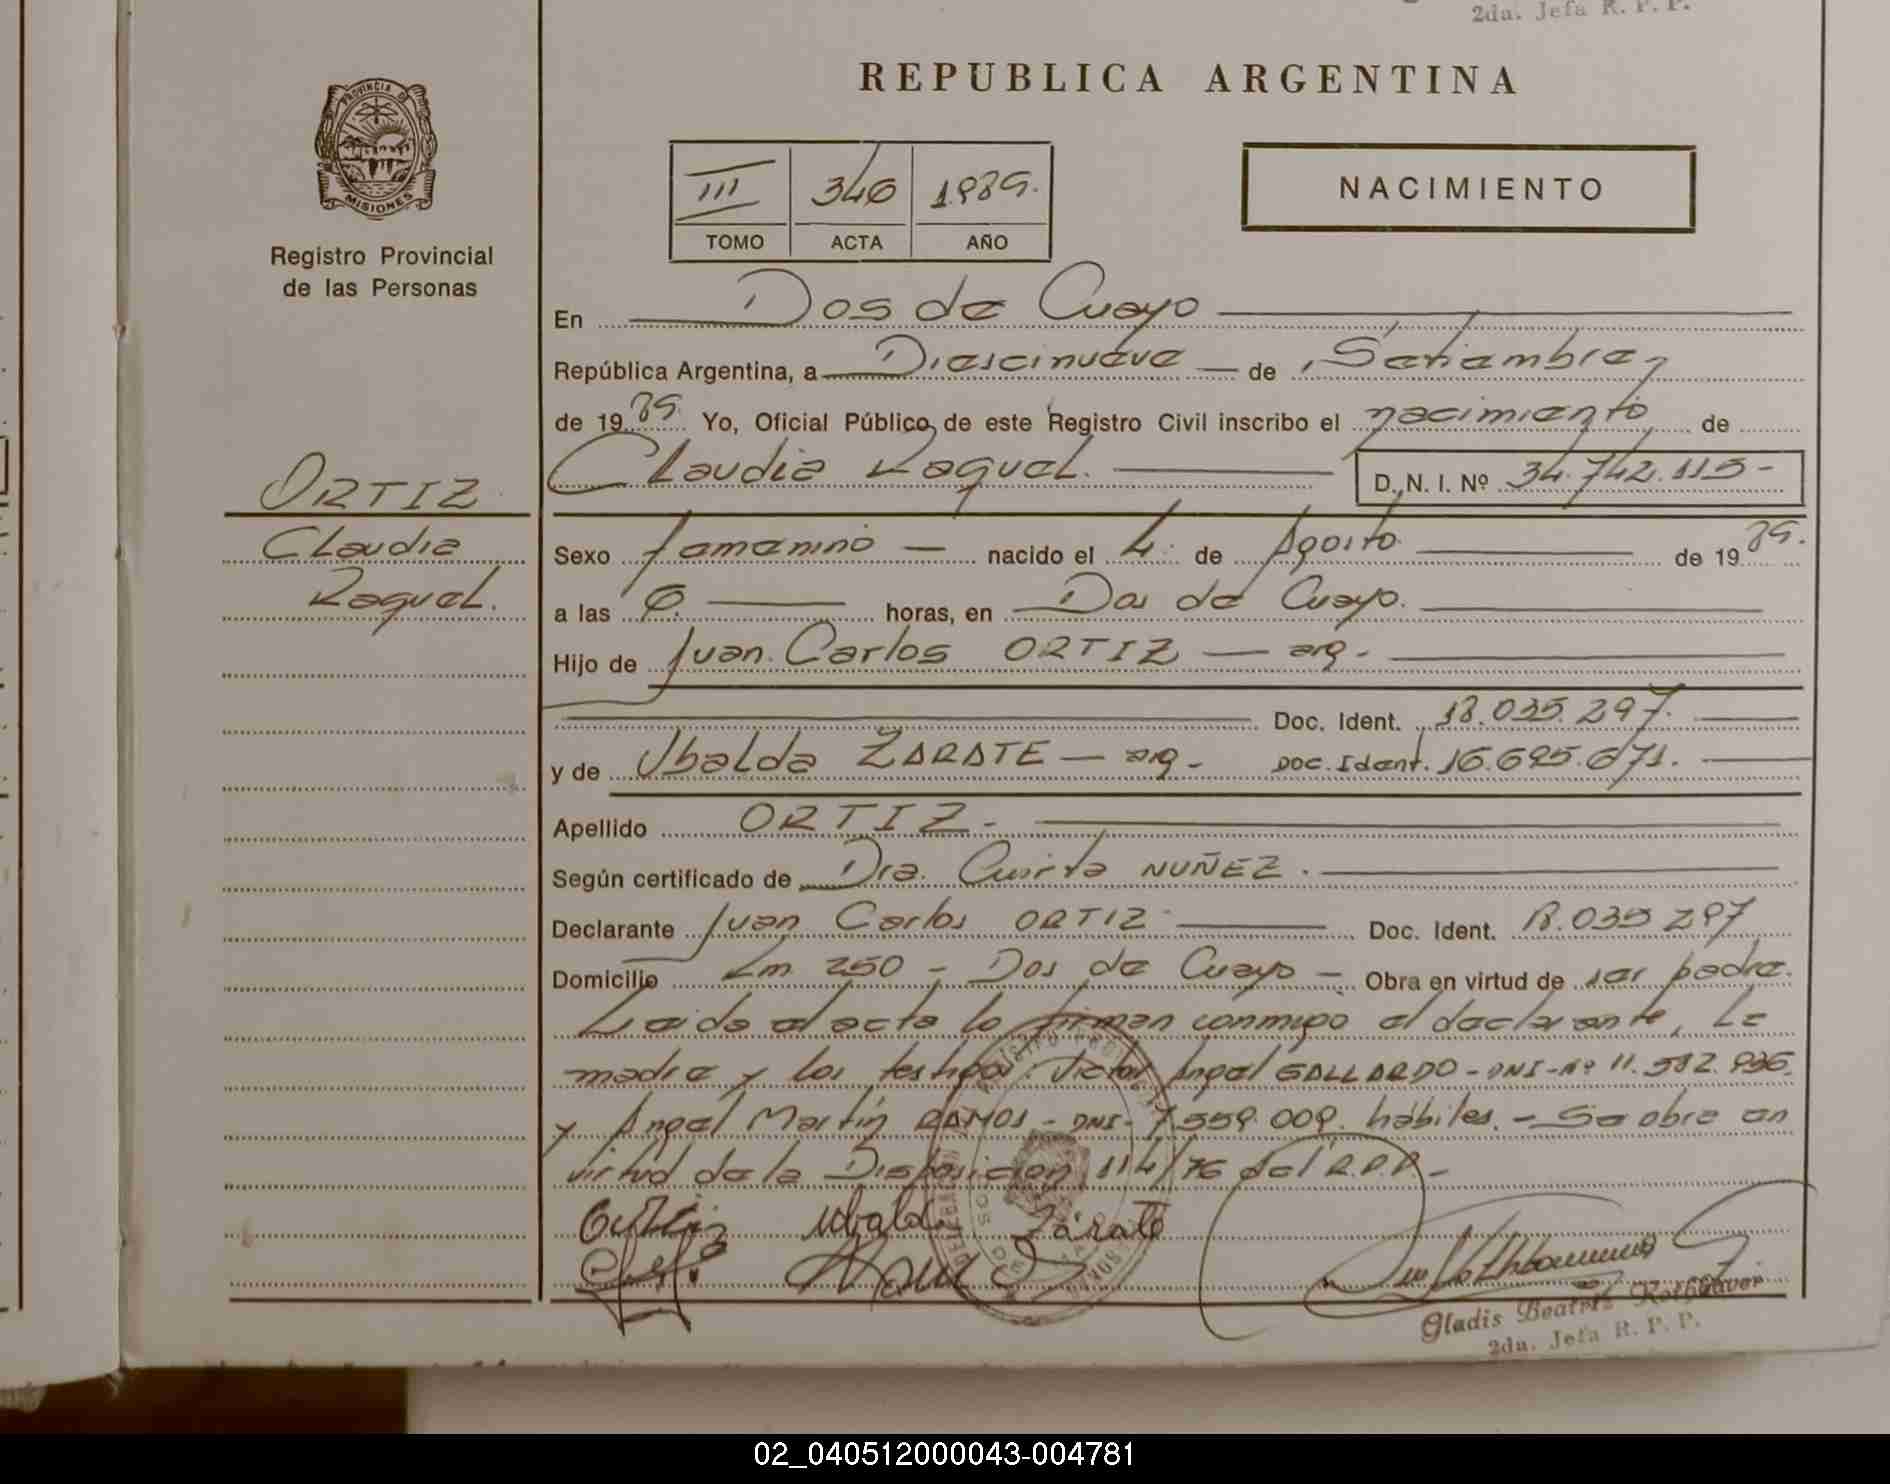 2da. Jefa R. P. P.
REPUBLICA ARGENTINA
PROVINCIA DE
MISIONES
Registro Provincial
de las Personas
III 346 1989.
TOMO ACTA AÑO
NACIMIENTO
En Dos de Mayo
República Argentina, a Diescinueve de Setiembre,
de 1989. Yo, Oficial Público, de este Registro Civil inscribo el nacimiento, de
Claudia Raquel. D. N. I. Nº 34.742.115-
ORTIZ
Claudia
Raquel.
Sexo femenino nacido el 4. de Agosto de 1989.
a las 6. horas, en Dos de Mayo.
Hijo de Juan Carlos ORTIZ — arg.
Doc. Ident. 18.035.297.
y de Ubalda ZARATE — arg. Doc. Ident. 16.695.671.
Apellido ORTIZ.
Según certificado de Dra. NUÑEZ.
Declarante Juan Carlos ORTIZ Doc. Ident. 18.035.297
Domicilio Km 250 - Dos de Mayo - Obra en virtud de ser padre.
Leida el acta la firman conmigo el declarante, la
madre y los testigos: Victor Angel GALLARDO - DNI-Nº 11.582.936
y Angel Martín RAMOS - DNI- 7.559.009. hábiles. - Se obra en
virtud de la Disposicion 114/76 del R.P.P. -
Ubalda Zárate
Gladis Beatriz
2da. Jefa R. P. P.
02_040512000043-004781